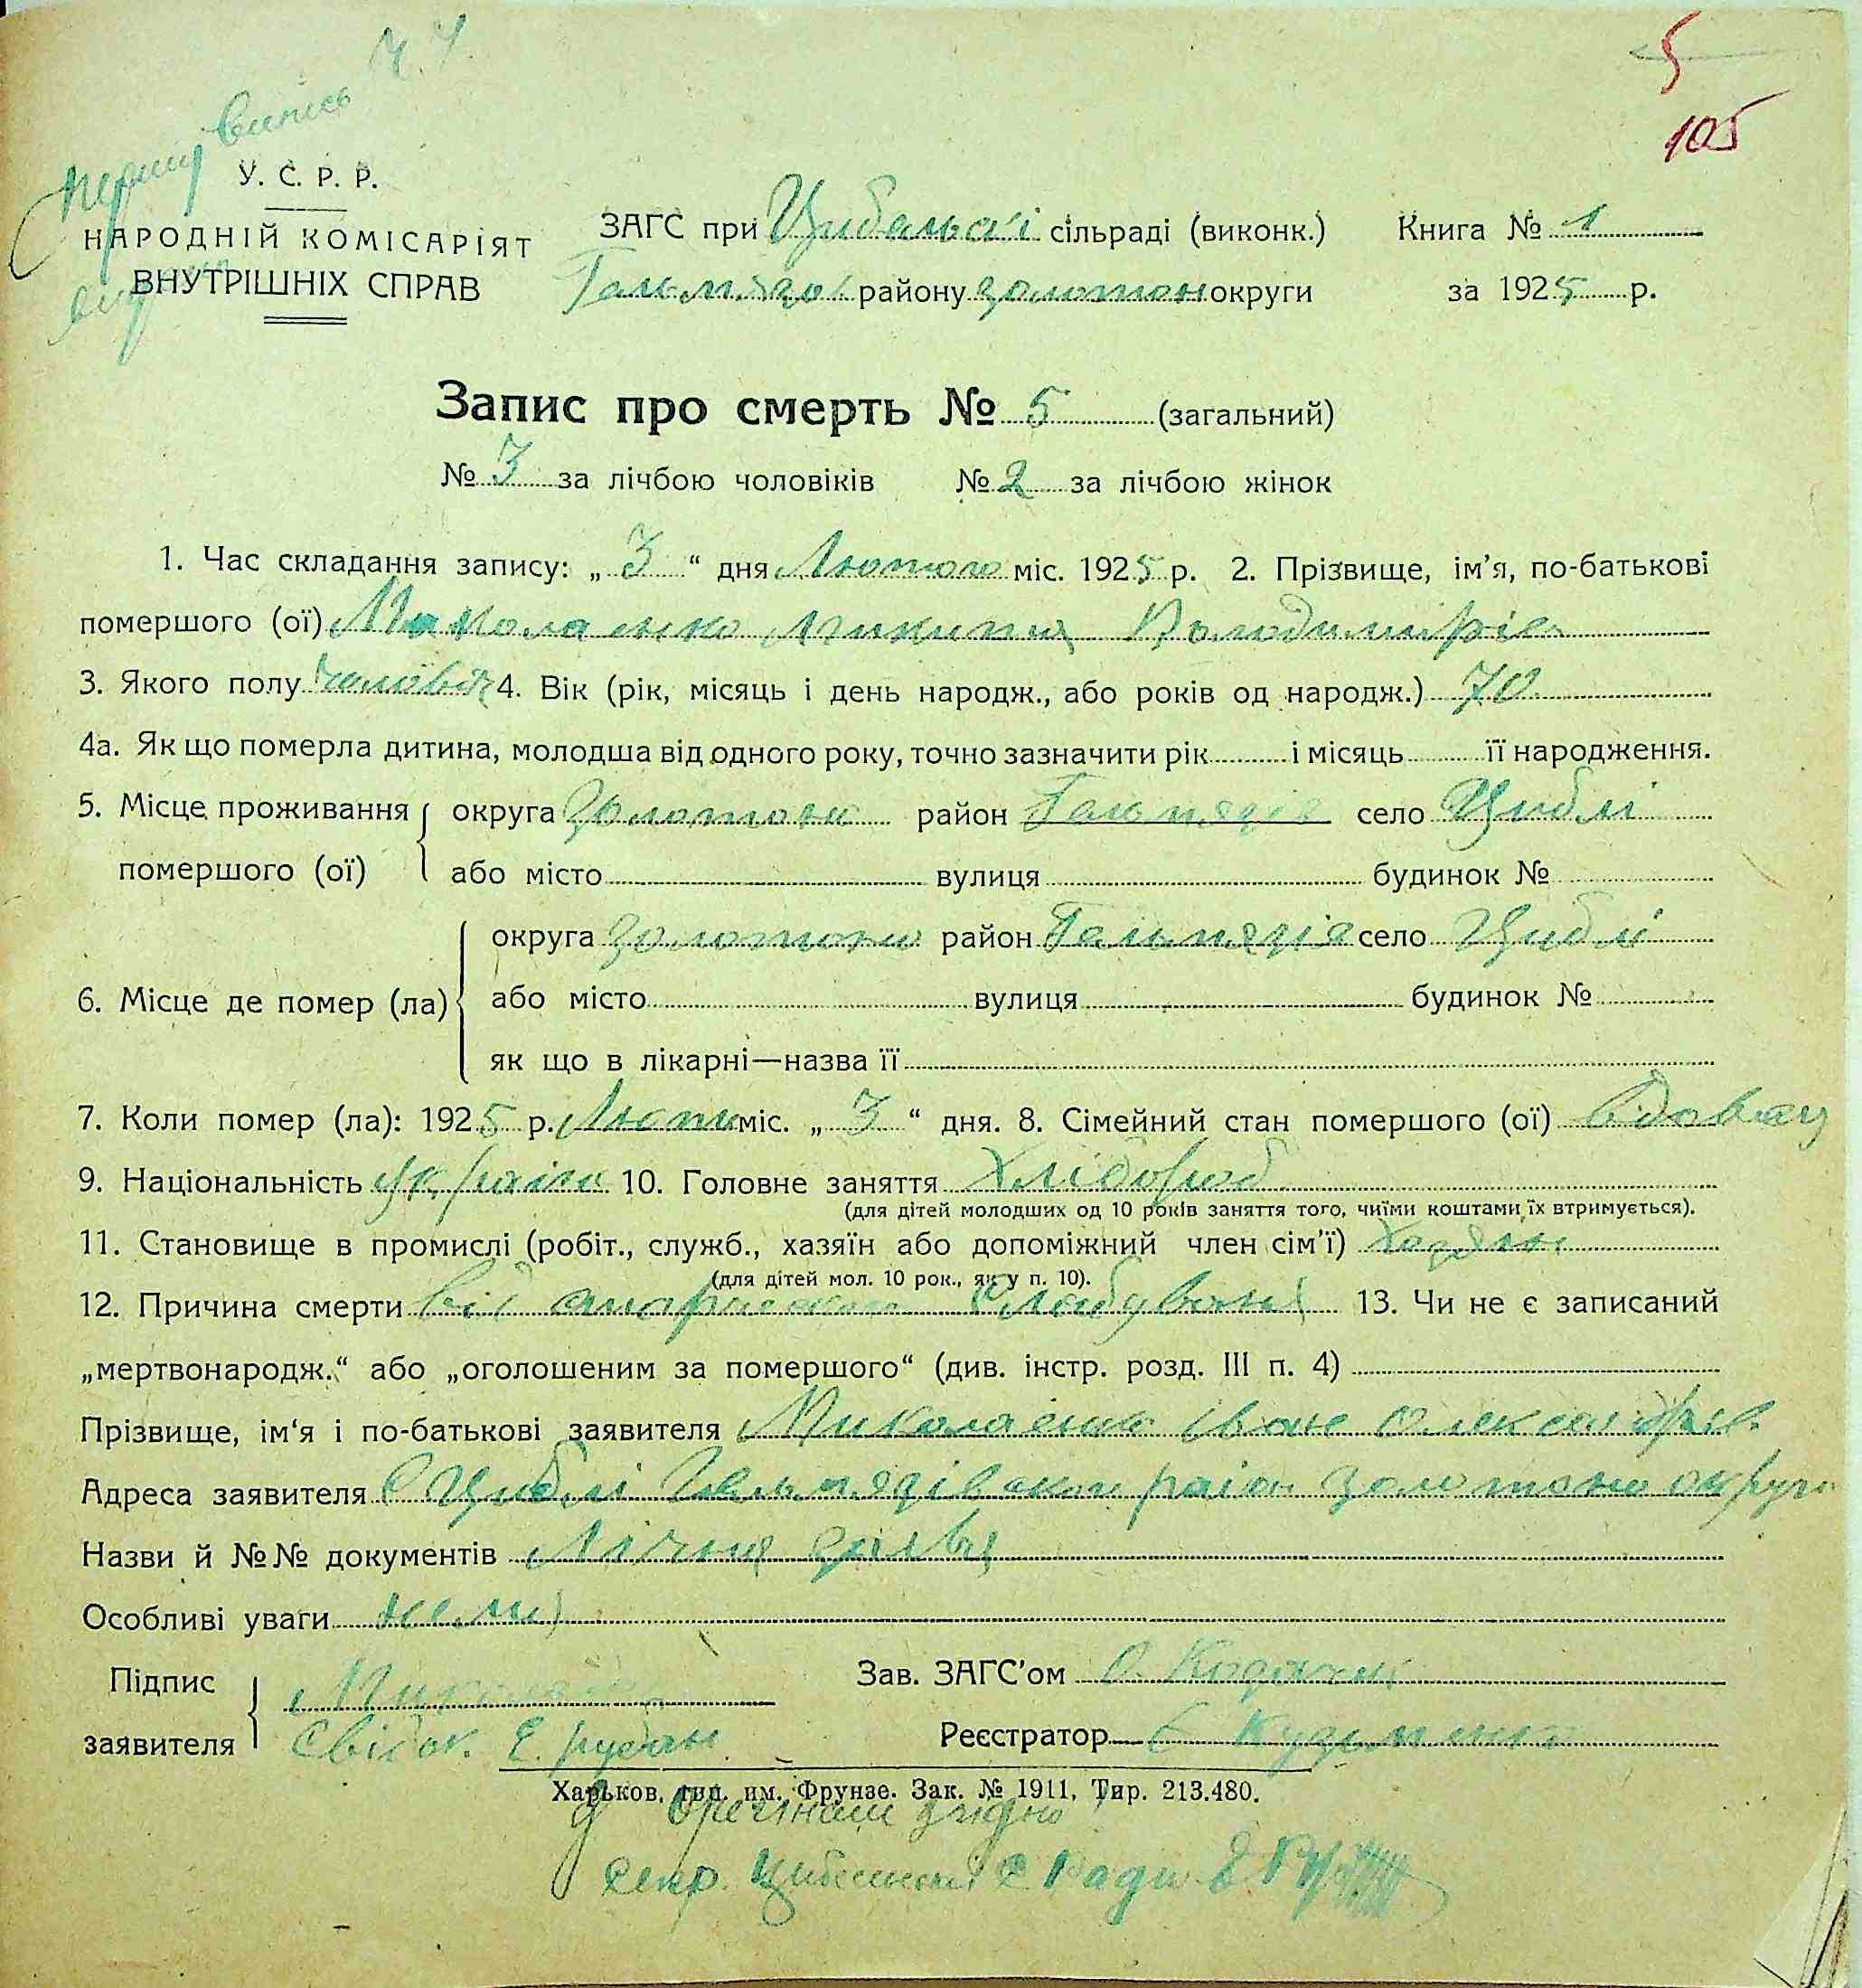 Ч. 4.
5
105
Першу випись
У. С. Р. Р.
НАРОДНІЙ КОМІСАРІЯТ
ВНУТРІШНІХ СПРАВ
ЗАГС при Цибельскі сільраді (виконк.) Книга № 1
Гельмязів району золотон округи за 1925 р.
Запис про смерть № 5 (загальний)
№ 3 за лічбою чоловіків № 2 за лічбою жінок
1. Час складання запису: „ 3 “ дня Лютого міс. 1925 р. 2. Прізвище, ім'я, по-батькові
помершого (ої) Миколаенко Микита Володимирів
3. Якого полу чоловік 4. Вік (рік, місяць і день народж., або років од народж.) 70
4а. Як що померла дитина, молодша від одного року, точно зазначити рік і місяць її народження.
5. Місце проживання округа Золотон район Гельмязів село Циблі
помершого (ої) або місто вулиця будинок №
округа золотон район Гельмязів село Циблі
6. Місце де помер (ла) або місто вулиця будинок №
як що в лікарні—назва її
7. Коли помер (ла): 1925 р. Лютий міс. „ 3 “ дня. 8. Сімейний стан помершого (ої) вдовец
9. Національність україн 10. Головне заняття Хлібороб
(для дітей молодших од 10 років заняття того, чиїми коштами їх втримується).
11. Становище в промислі (робіт., служб., хазяїн або допоміжний член сім'ї) Хазяін
(для дітей мол. 10 рок., як у п. 10).
12. Причина смерти від 13. Чи не є записаний
„мертвонародж.“ або „оголошеним за помершого“ (див. інстр. розд. III п. 4)
Прізвище, ім'я і по-батькові заявителя Миколаенко Іван Олександрів
Адреса заявителя С Циблі Гельмязівскои район золотоно округи
Назви й №№ документів Лічня
Особливі уваги нема
Підпис Миколаенко Зав. ЗАГС'ом О.
заявителя Свідок. Е. рубан Реєстратор Є Кузьменко
Харьков, тип. им. Фрунзе. Зак. № 1911, Тир. 213.480.
З Орегіналом згідно
Секр. Цибельскоі С Ради Е